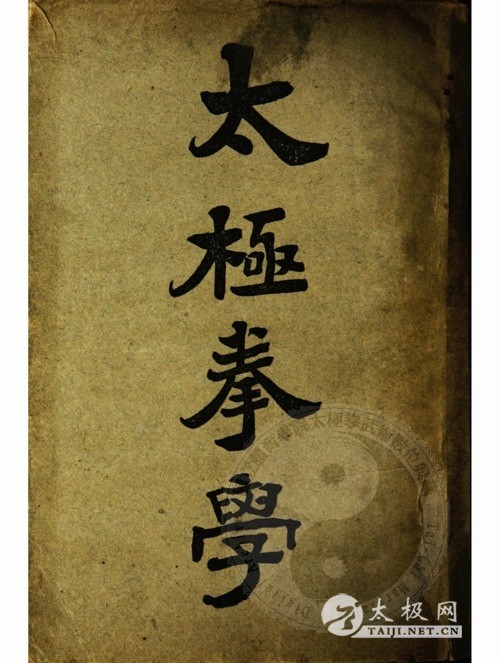 太極拳學
太极网
TAIJI.NET.CN